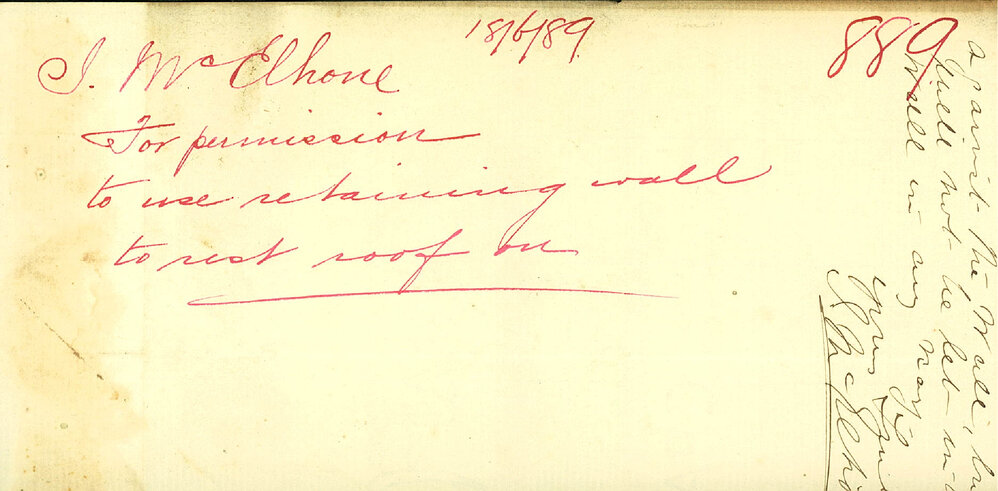 18/6/89
889
J. McElhone
For permission
to use retaining wall
to rest roof on
against the Wall,
will not be let in
Wall in any way
yours
McElho